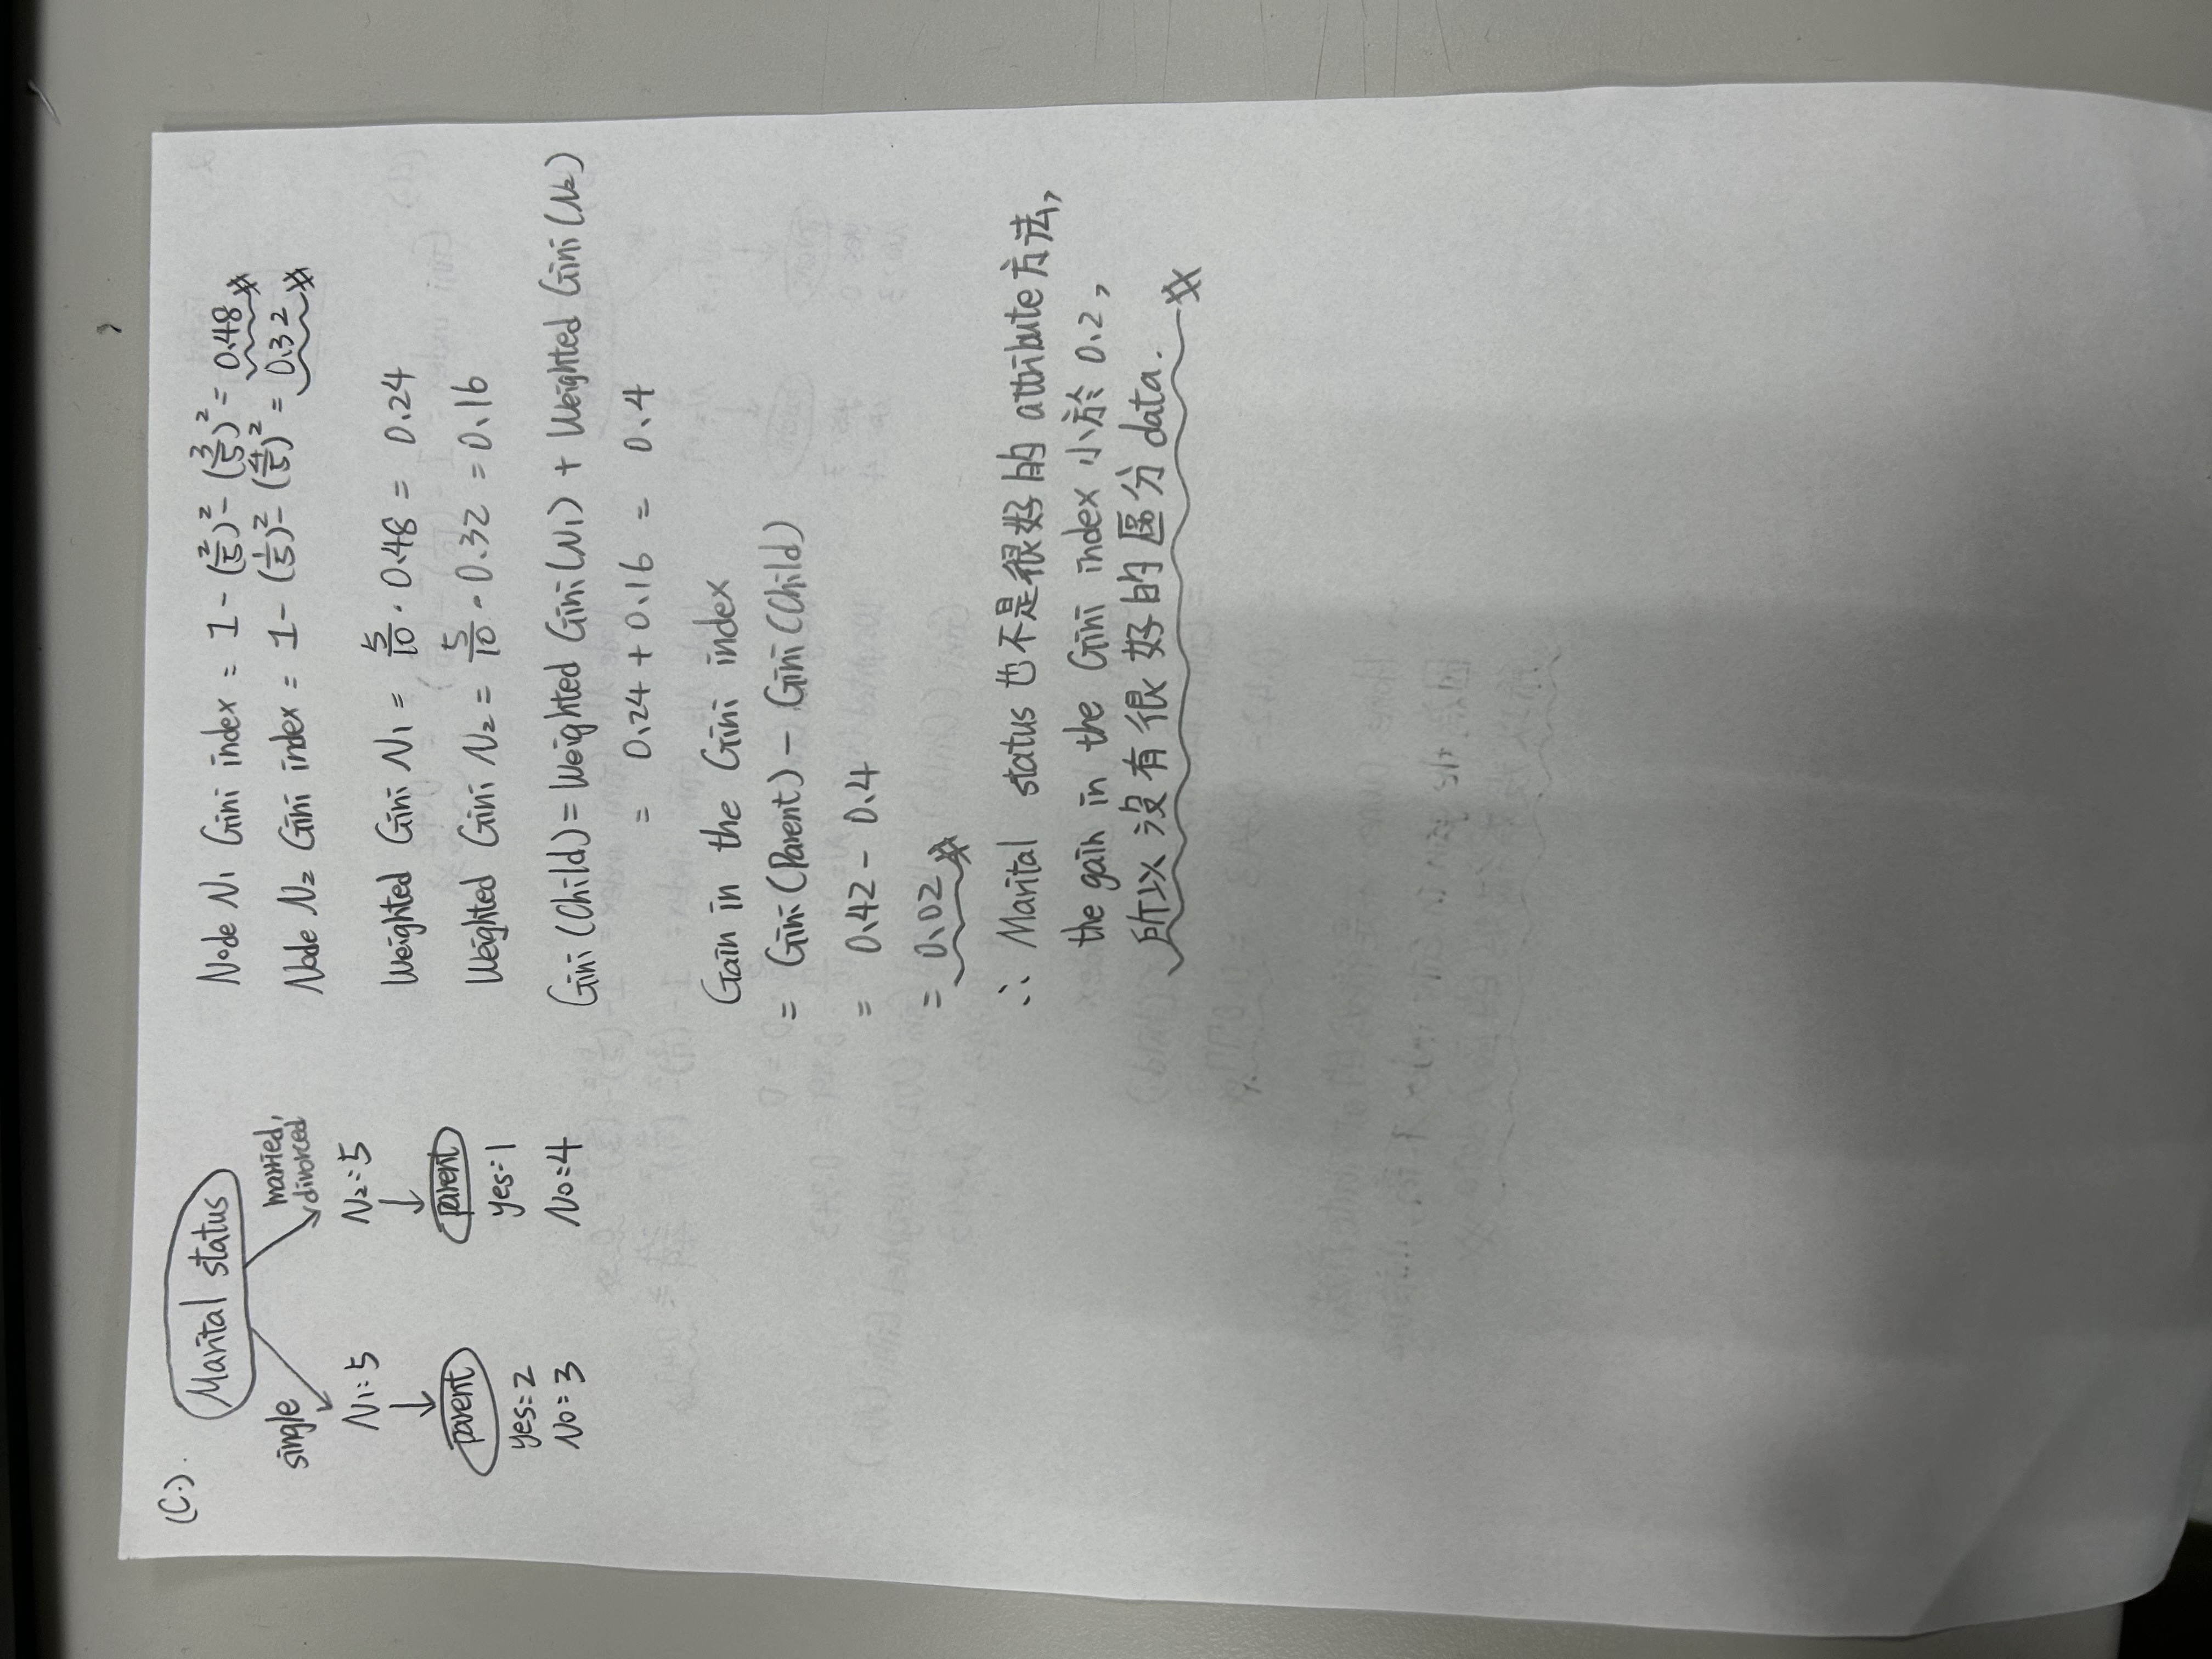 (C.).
Marital status
single
married,
divorced
N₁: 5
N₂: 5
parent
parent
yes=2
yes=1
No=3
No=4
Node N₁ Gini index = 1 - (2/5)² - (3/5)² = 0.48 #
Node N₂ Gini index = 1 - (1/5)² - (4/5)² = 0.32 #
Weighted Gini N₁ = 5/10 · 0.48 = 0.24
Weighted Gini N₂ = 5/10 · 0.32 = 0.16
Gini (Child) = Weighted Gini (N₁) + Weighted Gini (N₂)
= 0.24 + 0.16 = 0.4
Gain in the Gini index
= Gini (Parent) - Gini (Child)
= 0.42 - 0.4
= 0.02 #
∴ Marital status 也不是很好的 attribute 方法,
the gain in the Gini index 小於 0.2,
所以 沒有很好的區分 data. #